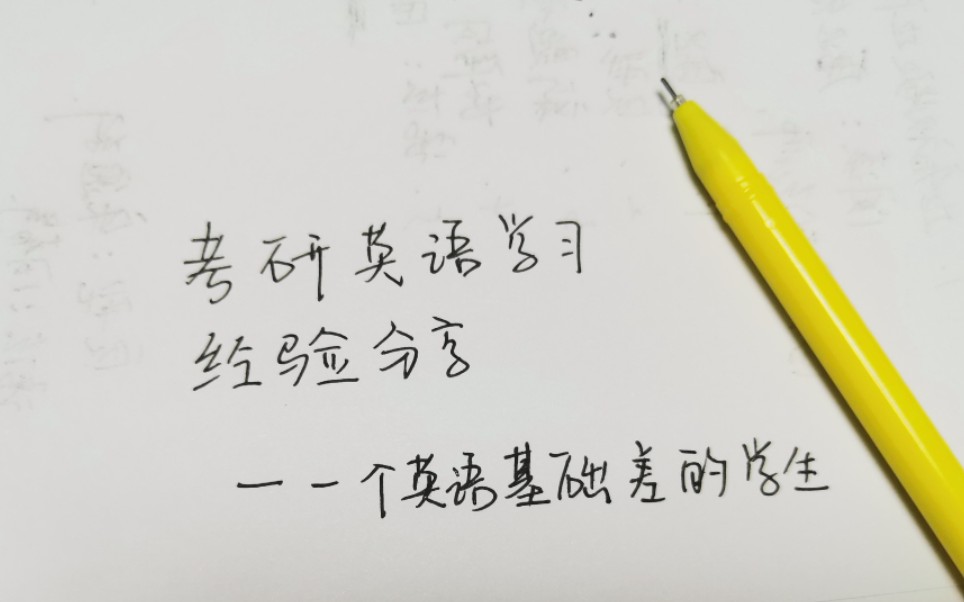 考研英语学习
经验分享
— 一个英语基础差的学生